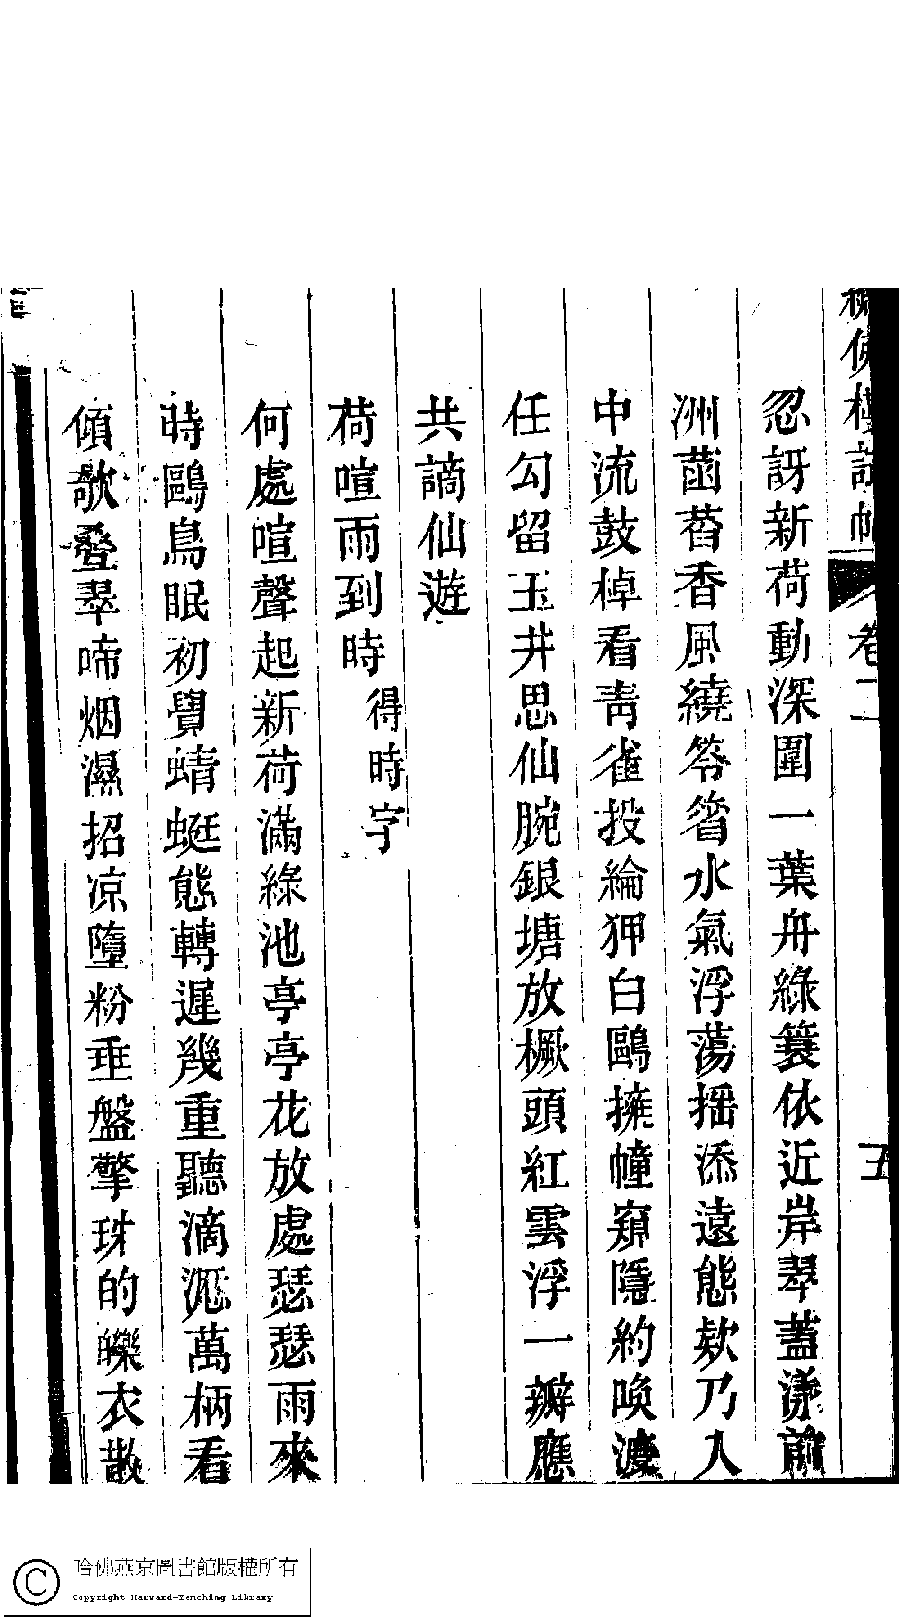 佛樓詩 卷二 五
忽訝新荷動深圍一葉舟綠簑依近岸翠蓋漾前
洲菡萏香風繞笭箵水氣浮蕩搖添遠態欸乃人
中流鼓棹看靑雀投綸狎白鷗擁幢窺隱約喚渡
任勾留玉井思仙腕銀塘放橛頭紅雲浮一瓣應
共謫仙遊
荷喧雨到時 得時字
何處喧聲起新荷滿綠池亭亭花放處瑟瑟雨來
時鷗鳥眠初覺蜻蜓態轉遲幾重聽滴萬柄看
傾欹叠翠啼烟濕招凉墮粉垂盤擎珠的皪衣散
哈佛燕京圖書館版權所有
Copyright Harvard-Yenching Library